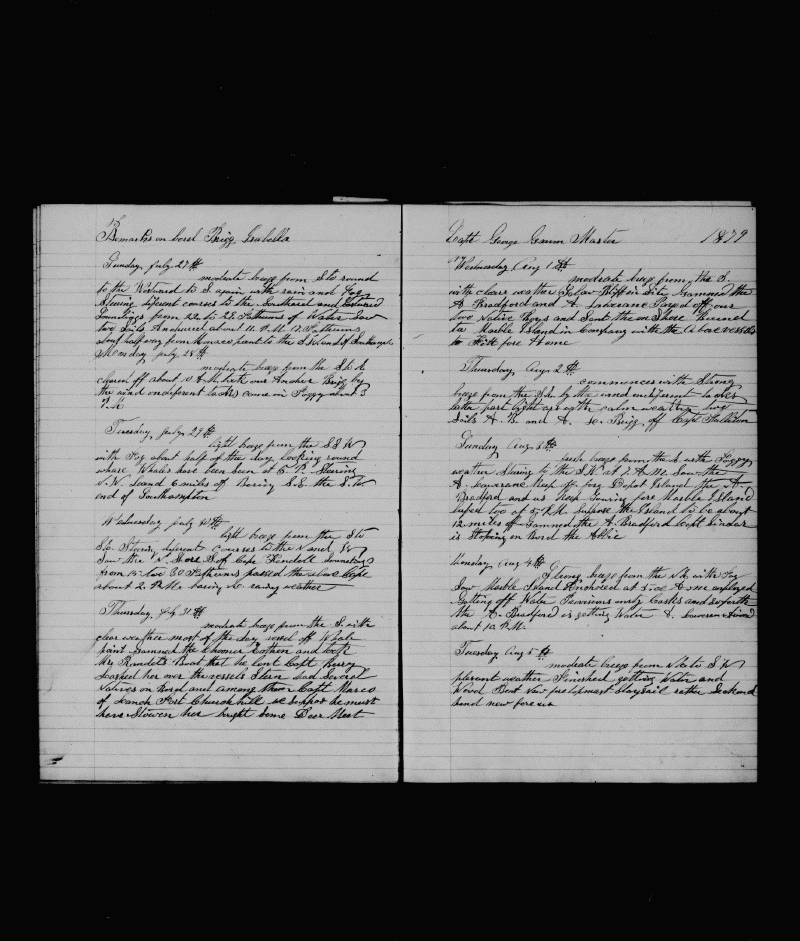 Remarks on bord Brigg Isabella
Sunday, July 27th
moderate breeze from S to round
to the Westward to S again with rain and Fog
Stearing diferent courses to the Southerd and Estward
Soundings from 22 to 28 Fathoms of Water Saw
two Sails Anchured about 11 P.M. 17 Fathoms
Monday July 28th
moderate breeze from the
cleared off about A.M. took our Anchor Brigg by
the wind on diferent tacks came in Foggy about 3
P.M.
Tuesday July 29th
light breeze from the S.S.W
with Fog about half of the day looking round
where Whales have been seen at 5 P. Stearing
N.W. Land 6 miles off Baring S.E. the S.W
end of Southampton
Wednesday July 30th
light breeze from the S to
S.E. Stearing diferent courses to the N and W
Saw the N. Shore off Cape Kendell Soundings
from 15 too 30 Fathoms passed the above Cape
about 2 P.M.
Thursday July 31st
moderate breeze from the S. with
clear weather most of the day off Whale
point Gammed the Schooner Eothen and took
Mrs Randels Boat that he lent Capt Berry
Lashed her over the vessels Stern had Several
Natives on bord and among them Capt Marco
of Launch Fort Churchhill we suppos he must
have Stowen her bought Some Deer Meet
Capt George Garvin Master 1879
Wednesday Aug 1st
moderate breeze from the S.
with clear weather Below Bluff in Site Gammed the
A Bradford and A Lawrance Payed off our
two Native Boys and Sent them on Shore Bound
for Marble Island in Company with the Above vessels
to Fitt fore Home
Thursday, Aug 2th
commences with Strong
breeze from the S by the wind on diferent tacks
later part light airs with calm weather two
Sails A. B. and A. Brigg off Cape Fullerton
Sunday Aug 3th
fresh breeze from the with Foggy
weather Stearing to the S.W. at 7 A.M. Saw the
A Lawrance Keep off for Depot Island the A
Bradford and us Keep Goving fore Marble Island
Luffed too at 5 P.M. Suppose the Island to be about
12 miles off Gammed the A Bradford Capt
is Stoping on Bord the Abbie
Monday Aug 4th
Strong breeze from the with Fog
Saw Marble Island Anchored at A.M employed
Getting off Water Provisions and so forth
the A. Bradford is getting Water A. Lawrance arived
about 10 P.M.
Tuesday Aug 5th
moderate breeze from N to S W
plesent weather Finished getting Water and
Wood Bent New foretopmast Staysail rather Seckond
hand new fore